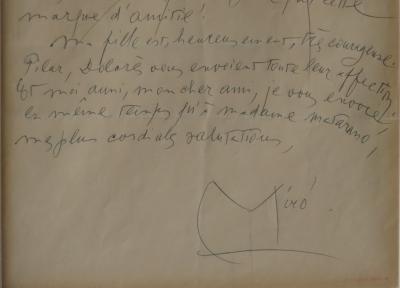 marque d'amitié!
Ma fille est, heureusement, très courageuse.
Pilar, Dolorès vous envoient toute leur affection
Et moi aussi, mon cher ami, je vous envoie,
en même temps qu'à madame
mes plus cordiales salutations,
Miró